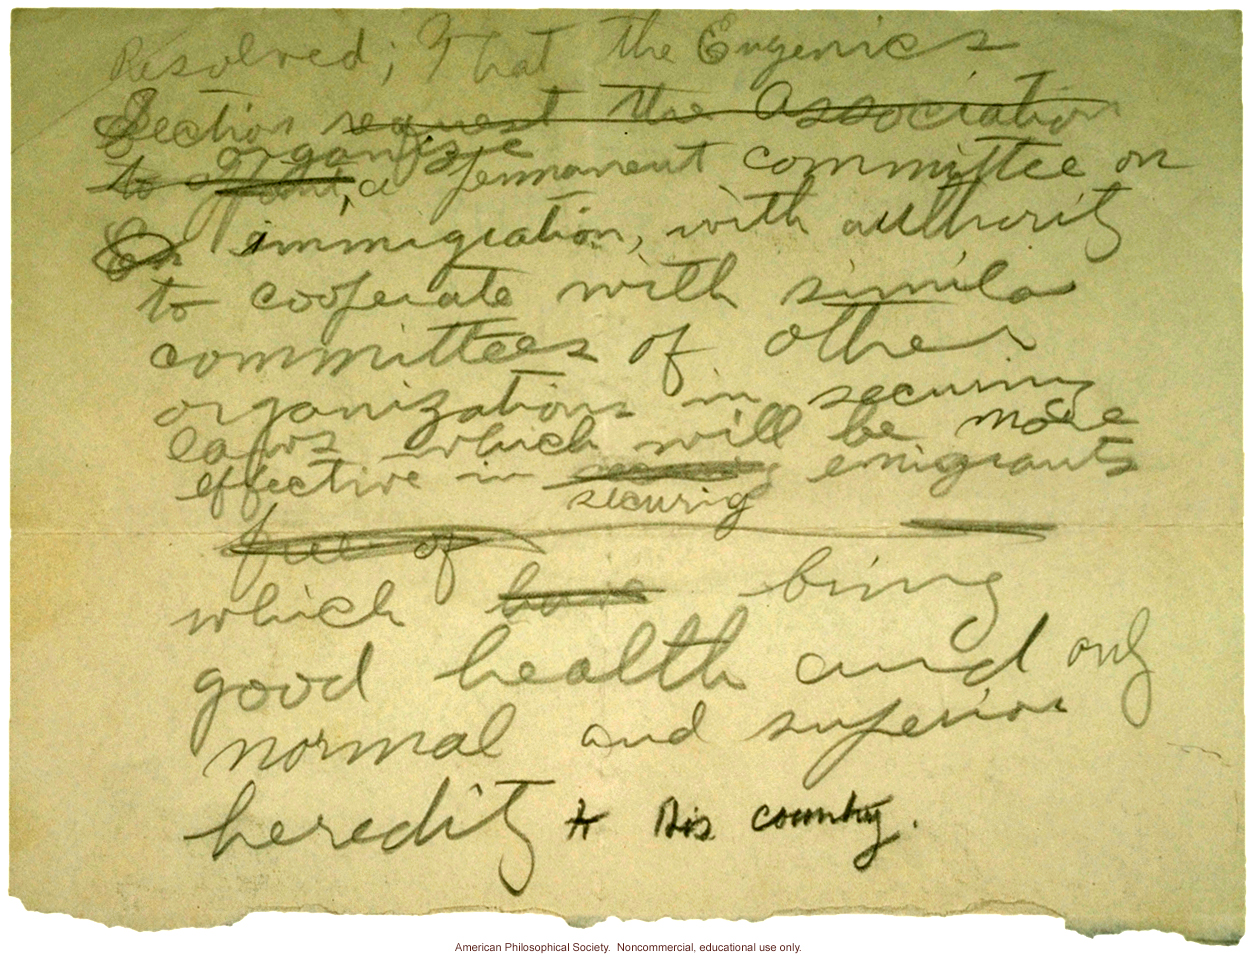 Resolved; That the Eugenics
Section request the Association
to organize
a permanent committee on
On immigration, with authority
to cooperate with similar
committees of other
organizations in securing
laws which will be more
effective in emigrants
securig
free of
which bring
good health and only
normal and superior
heredity to this country.
American Philosophical Society. Noncommercial, educational use only.